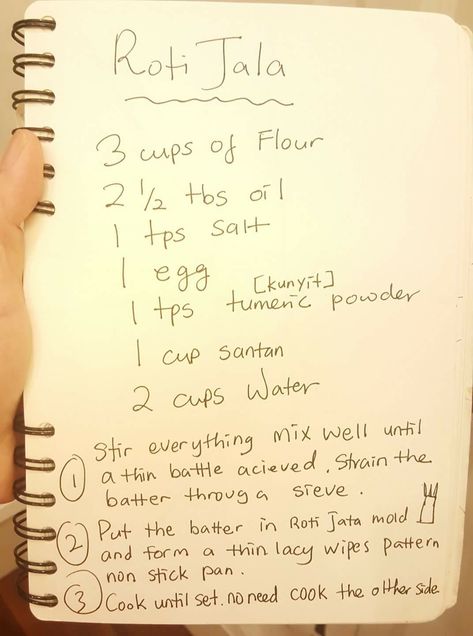 Roti Jala
3 cups of Flour
2 1/2 tbs oil
1 tps salt
1 egg
[kunyit]
1 tps tumeric powder
1 cup santan
2 cups Water
Stir everything mix well until
① a thin battle acieved. Strain the
batter throug a sieve.
Put the batter in Roti Jata mold
② and form a thin lacy wipes pattern
non stick pan.
③ Cook until set. no need cook the other side